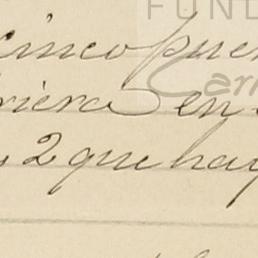 FUND
cinco puer
Car
riera en
2 que hay